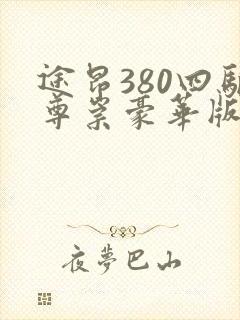 途昂380四驱
尊崇豪华版
夜夢巴山